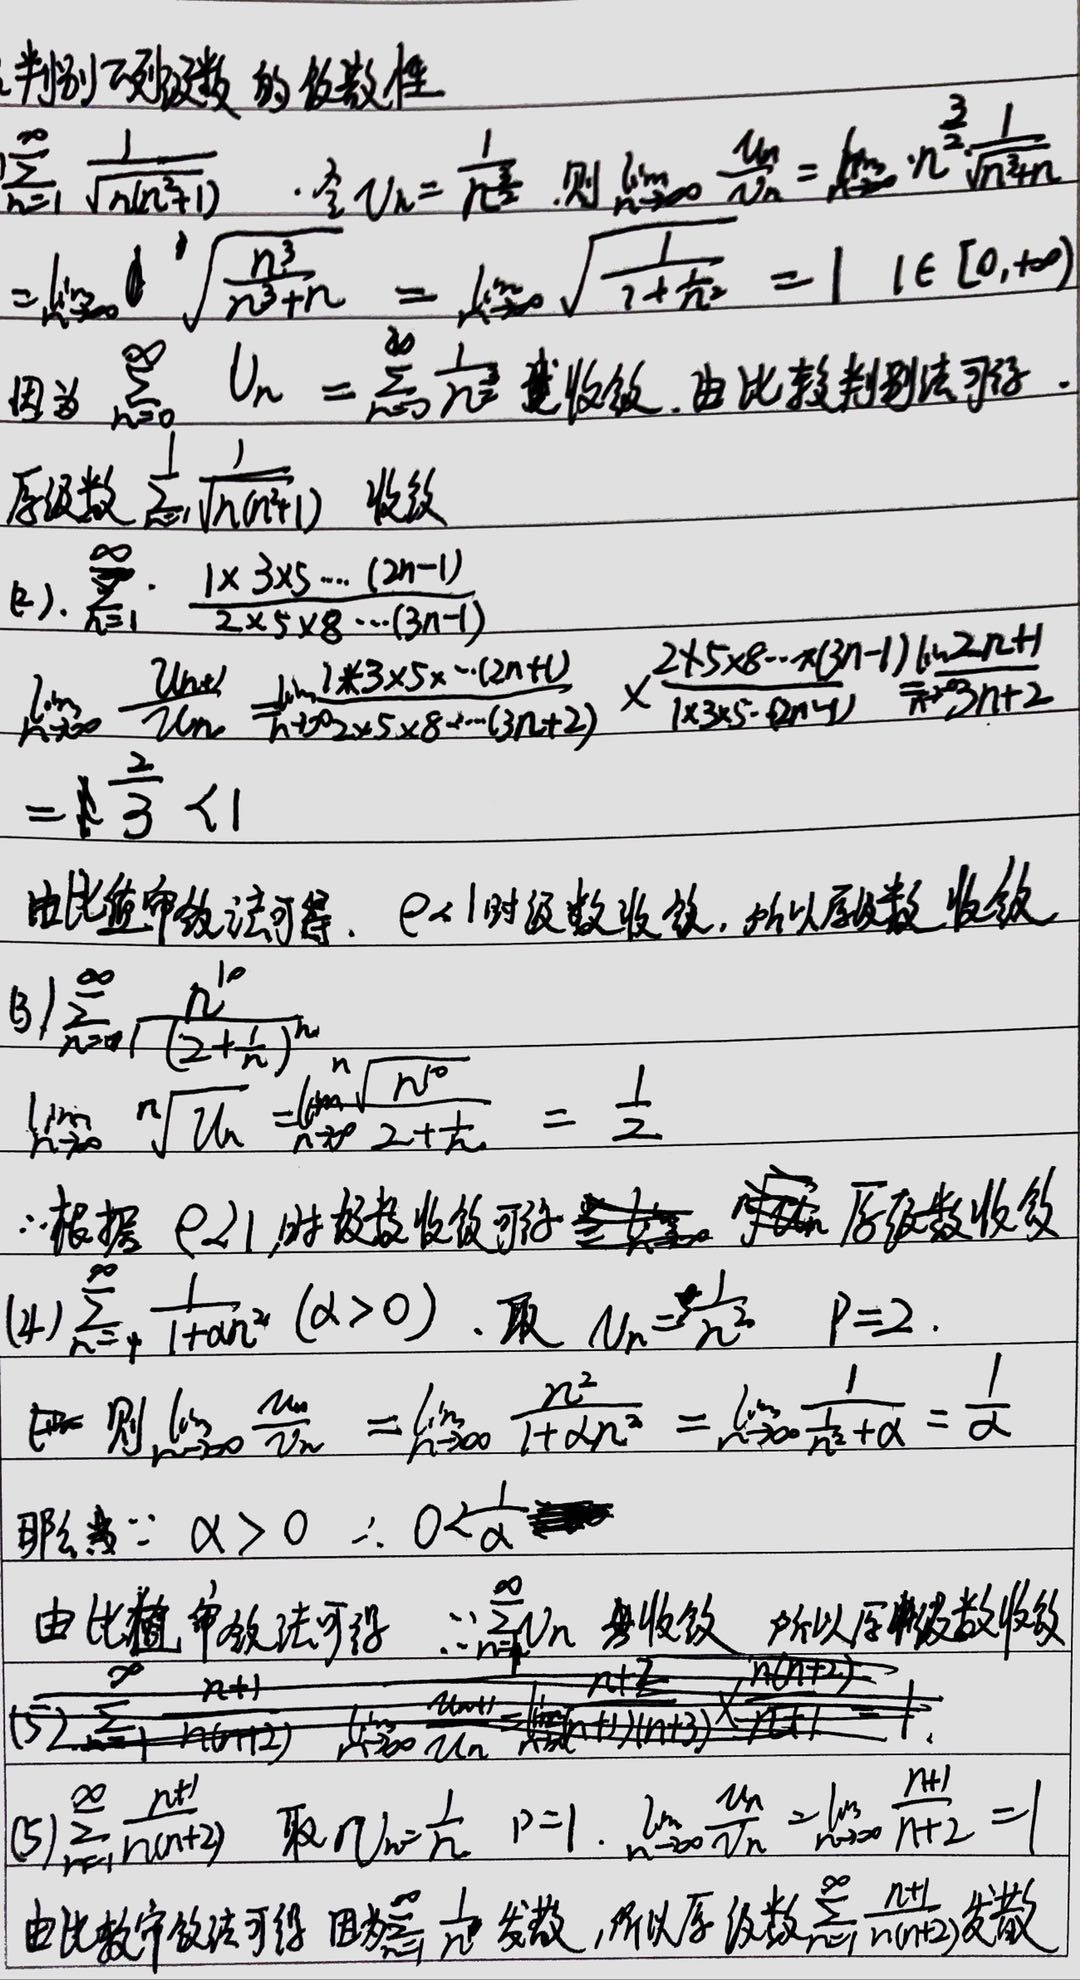 判别下列级数的敛散性
∑_{n=1}^{∞} 1/√(n(n²+1)) . 令 Vn = 1/n^{3/2} . 则 lim_{n→∞} Un/Vn = lim_{n→∞} · n^{3/2} · 1/√(n³+n)
= lim_{n→∞} √(n³/(n³+n)) = lim_{n→∞} √(1/(1+1/n²)) = 1 1∈[0,+∞)
因为 ∑_{n=0}^{∞} Un = ∑_{n=0}^{∞} 1/n^{3/2} 收敛. 由比较判别法可得.
原级数 ∑_{n=1} 1/√(n(n²+1)) 收敛
(2). ∑_{n=1}^{∞} · (1×3×5…(2n-1))/(2×5×8…(3n-1))
lim_{n→∞} U_{n+1}/Un = lim_{n→∞} (1×3×5×…(2n+1))/(2×5×8×…(3n+2)) × (2×5×8…×(3n-1))/(1×3×5…(2n-1)) = lim_{n→∞} (2n+1)/(3n+2)
= 2/3 < 1
由比值审敛法可得. ρ<1时级数收敛, 所以原级数收敛
(3) ∑_{n=1}^{∞} n^{10}/(2+1/n)^n
lim_{n→∞} ⁿ√Un = lim_{n→∞} ⁿ√(n^{10})/(2+1/n) = 1/2
∴根据 ρ<1,时级数收敛可得 原级数收敛
(4) ∑_{n=1}^{∞} 1/(1+αn²) (α>0) . 取 Vn = 1/n² P=2.
则 lim_{n→∞} Un/Vn = lim_{n→∞} n²/(1+αn²) = lim_{n→∞} 1/(1/n²+α) = 1/α
那么 ∵ α>0 ∴ 0<1/α
由比值审敛法可得 ∵ ∑_{n=1}^{∞} Vn 收敛 所以原级数收敛
(5) ∑_{n=1}^{∞} (n+1)/(n(n+2)) lim_{n→∞} U_{n+1}/Un = lim_{n→∞} (n+2)/((n+1)(n+3)) × n(n+2)/(n+1) = 1.
(5) ∑_{n=1}^{∞} (n+1)/(n(n+2)) 取 Vn = 1/n P=1. lim_{n→∞} Un/Vn = lim_{n→∞} (n+1)/(n+2) = 1
由比较审敛法可得 因为 ∑_{n=1}^{∞} 1/n 发散, 所以原级数 ∑_{n=1}^{∞} (n+1)/(n(n+2)) 发散